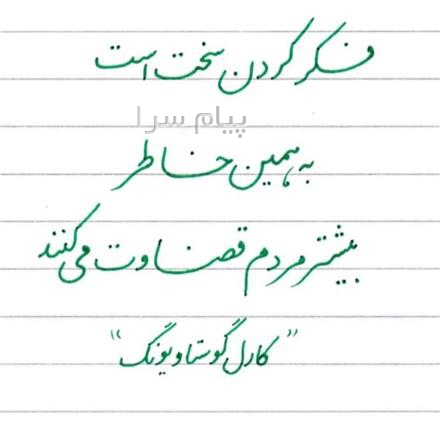 فکر کردن سخت است
پیام سرا
به همین خاطر
بیشتر مردم قضاوت می‌کنند
"کارل گوستاو یونگ"